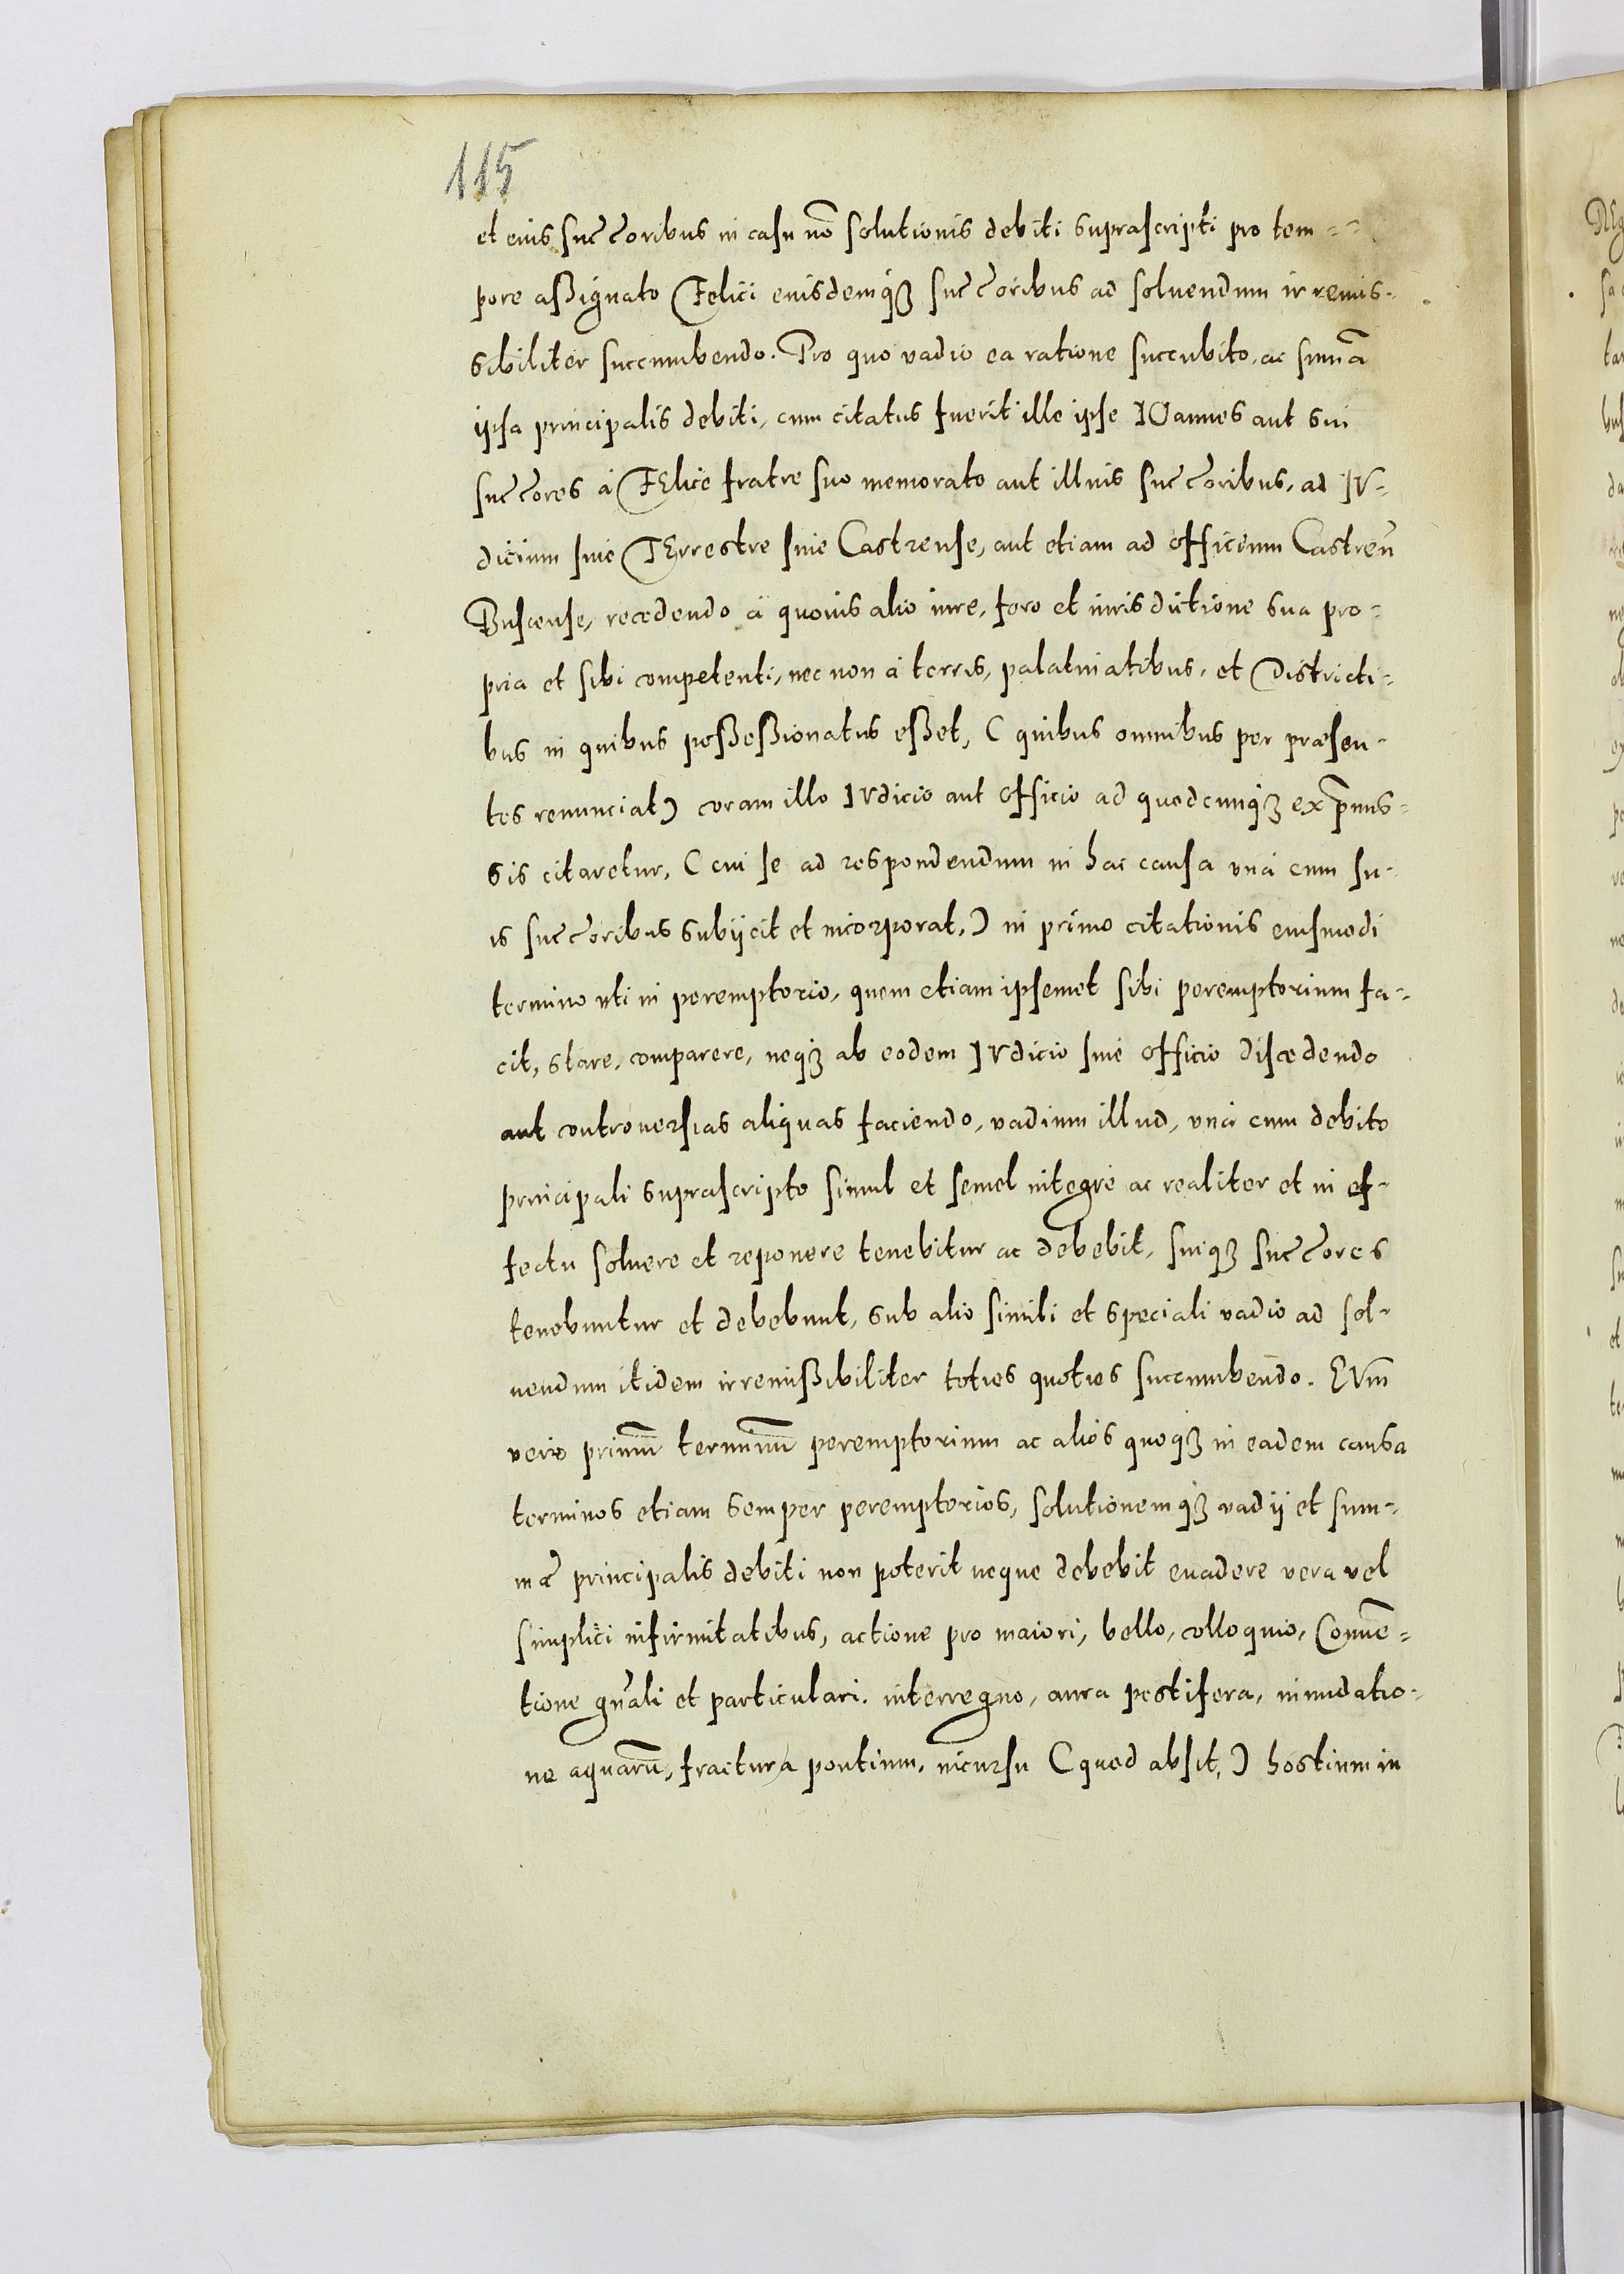 115
et eius succ͞oribus in casu nō solutionis debiti suprascripti pro tem=
pore aßignato Felici eiusdemqȝ succ͞oribus ad soluendum irremis-
sibiliter succumbendo. Pro quo vadio ea ratione succubito, ac sum̄a
ipsa principalis debiti, cum citatus fuerit ille ipse IOannes aut sui
succ͞ores à FElice fratre suo memorato aut illius succ͞oribus, ad IV-
dicium siue TErrestre siue Castrense, aut etiam ad officium Castren̄
Buscense, recedendo à quouis alio iure, foro et iurisdictione sua pro-
pria et sibi competenti, nec non à terris, palatinatibus, et Districti-
bus in quibus poßeßionatus eßet, (quibus omnibus per præsen-
tes renunciat) coram illo IVdicio aut officio ad quodcunqȝ ex p̄mis-
sis citaretur, (cui se ad respondendum in hac causa vnà cum su-
is succ͞oribus subijcit et incorporat,) in primo citationis eiusmodi
termino uti in peremptorio, quem etiam ipsemet sibi peremptorium fa-
cit, stare, comparere, neqȝ ab eodem IVdicio siue officio discedendo
aut controuersias aliquas faciendo, vadium illud, vnà cum debito
principali suprascripto simul et semel integrè ac realiter et in ef-
fectu soluere et reponere tenebitur ac debebit, suiqȝ succ͞ores
tenebuntur et debebunt, sub alio simili et speciali vadio ad sol-
uendum itidem irremißibiliter toties quoties succumbendo. EVm
verò primū terminū peremptorium ac alios quoqȝ in eadem causa
terminos etiam semper peremptorios, solutionemqȝ vadij et sum-
mæ principalis debiti non poterit neque debebit euadere vera vel
simplici infirmitatibus, actione pro maiori, bello, colloquio, Conuē-
tione gn̄ali et particulari. interregno, aura pestifera, inundatio-
ne aquarū, fractura pontium, incursu (quod absit,) hostium in